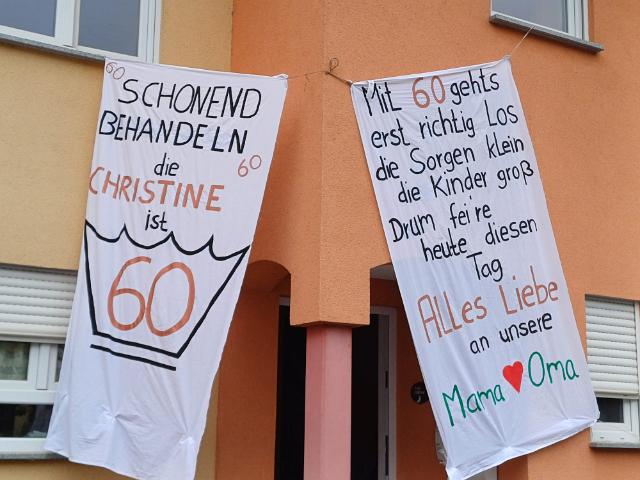 60
SCHONEND
BEHANDELN
die 60
CHRISTINE
ist
60
Mit 60 gehts
erst richtig Los
die Sorgen klein
die Kinder groß
Drum fei're
heute diesen
Tag
ALLes Liebe
an unsere
Mama Oma